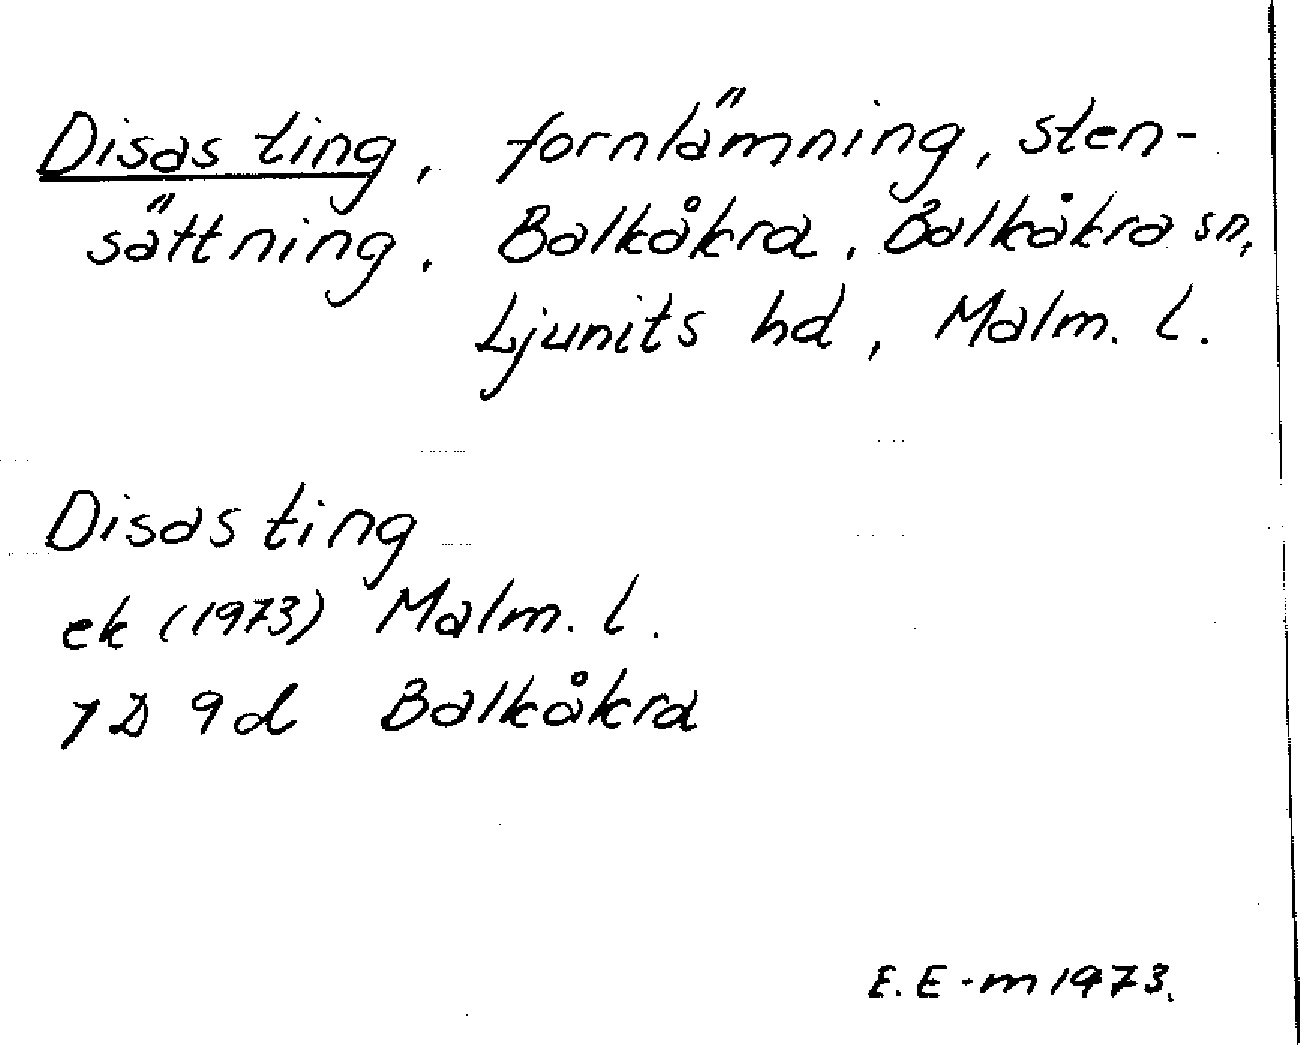 Disas ting, fornlämning, sten-
sättning, Balkåkra, Balkåkra sn,
Ljunits hd, Malm. l.
Disas ting
ek (1973) Malm. l.
1D 9d Balkåkra
E. E-m 1973.